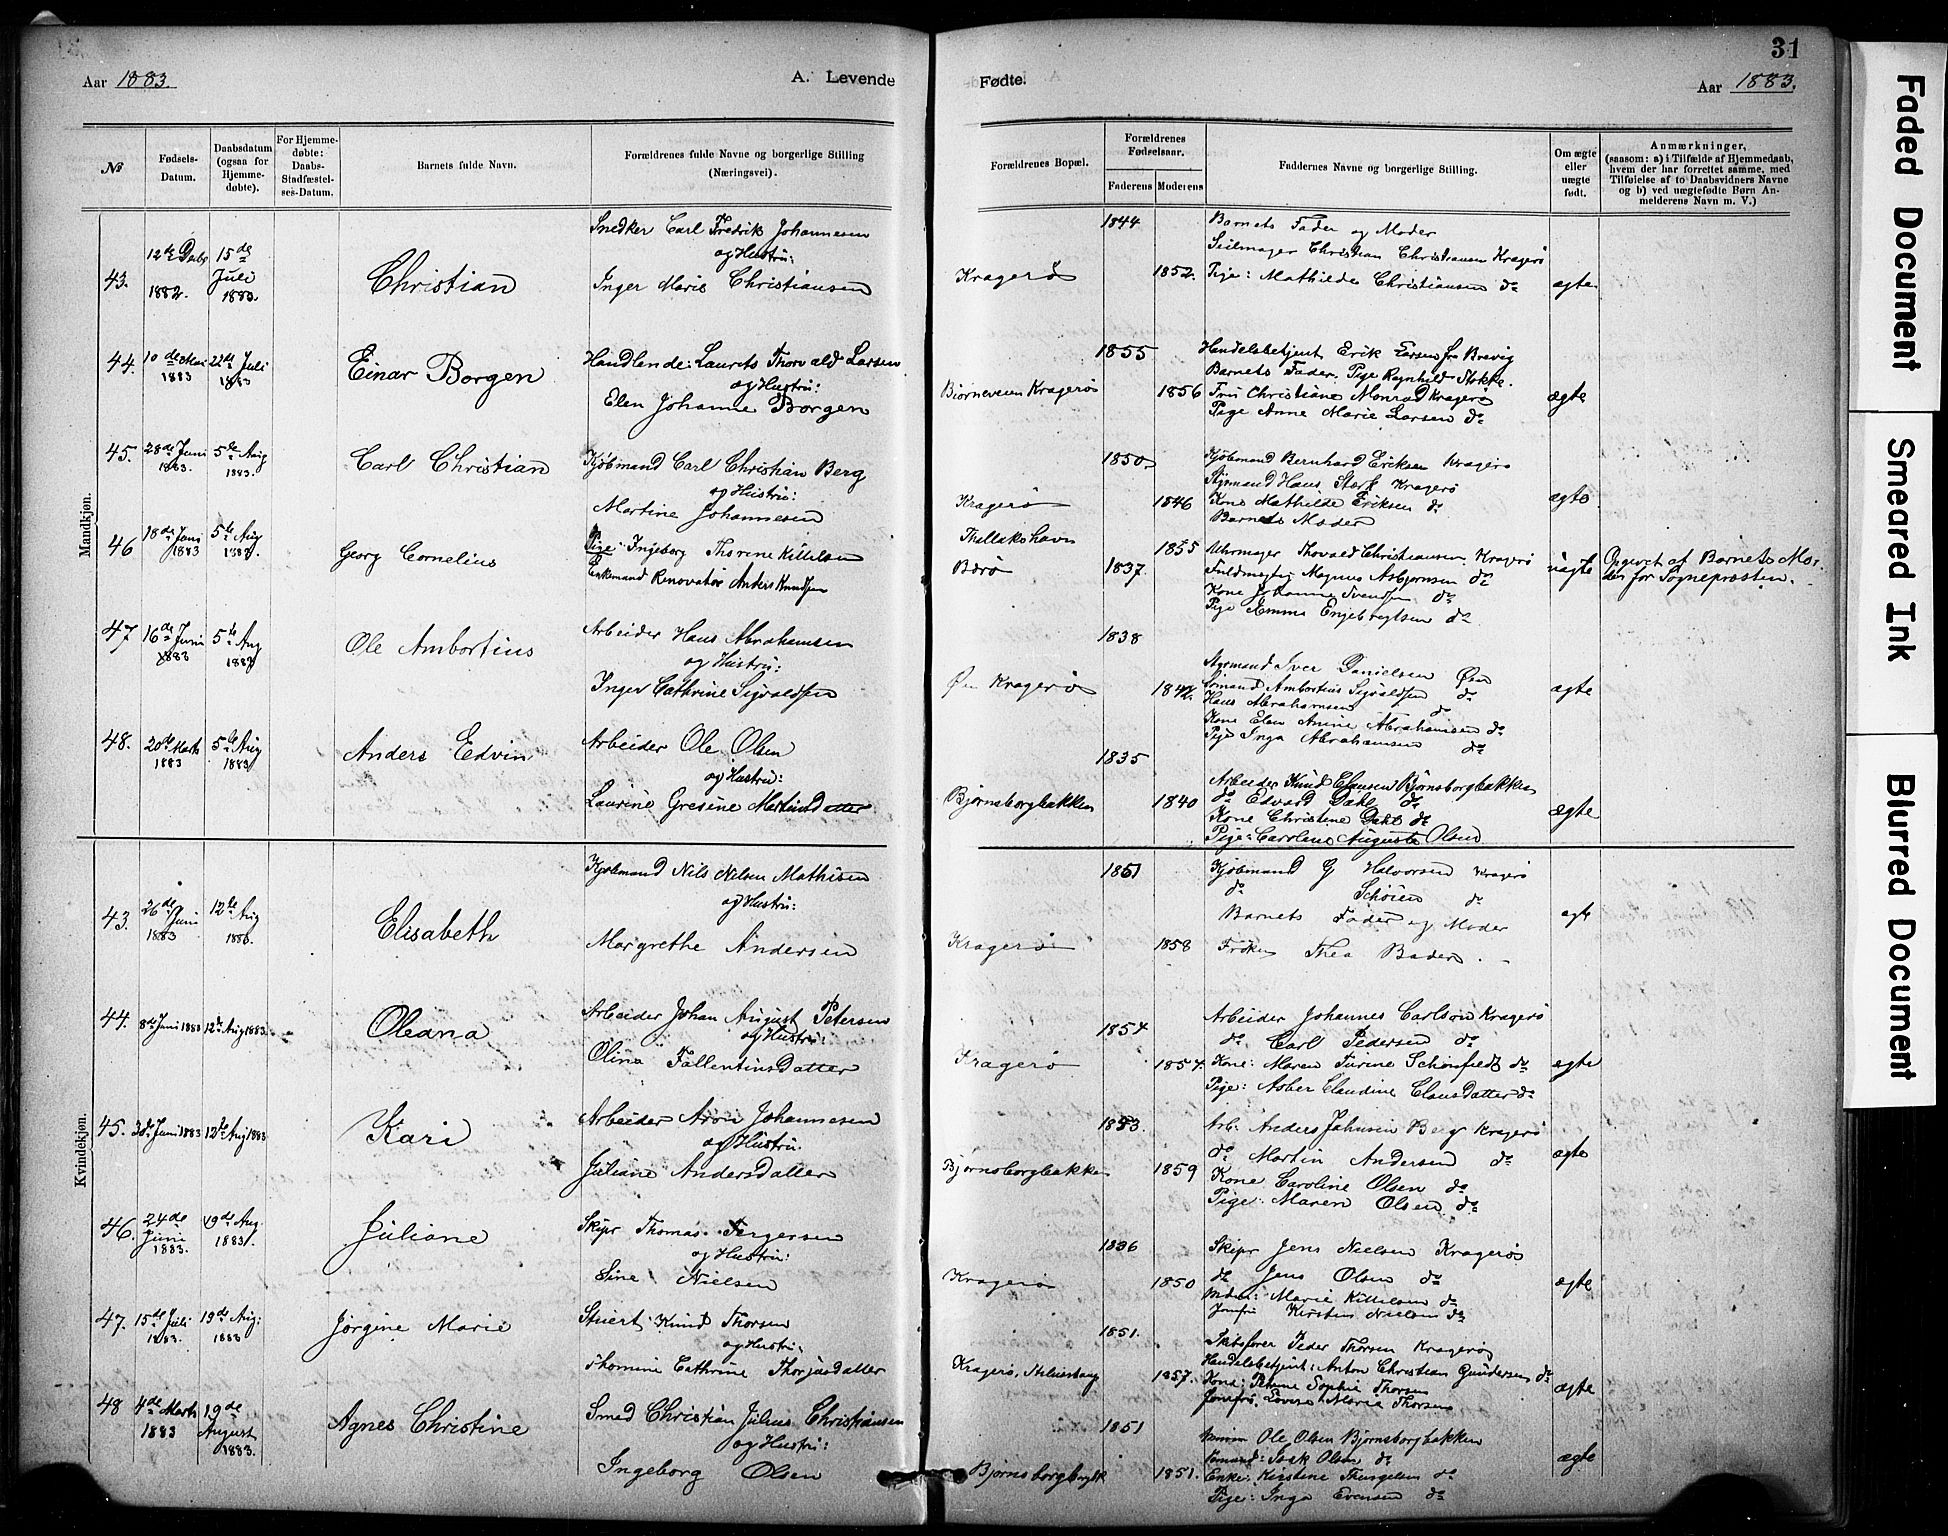 Aar 1883.
A. Levende
№
Fødsels-
Datum.
Daabsdatum
(ogsaa for
Hjemme-
døbte).
For Hjemme-
døbte:
Daabs-
Stadfæstel-
ses-Datum.
Barnets fulde Navn.
Forældrenes fulde Navne og borgerlige Stilling
(Næringsvei).
Mandkjøn.
43.
12te Decbr
1882.
15de
Juli
1883.
Christian
Snedker Carl Fredrik Johannesen
og Hustru:
Inger Marie Christiansen
44.
10de Mai
1883
22de Juli
1883
Einar Borgen
Handlende: Laurits Thorvald Larsen
og Hustru:
Elen Johanne Borgen
45.
28de Juni
1883.
5te Aug
1883.
Carl Christian
Kjøbmand Carl Christian Berg
og Hustru:
Martine Johannesen
46
18de Juni
1883
5te Aug
1883.
Georg Cornelius
Pige: Ingeborg Thorine Kittelsen
Enkemand Renovatør Anders Knudsen
47
16de Juni
1883
5te Aug
1883
Ole Ambortius
Arbeider Hans Abrahamsen
og Hustru:
Inger Cathrine Sigvaldsen
48.
20de Marts
1883
5te Aug
1883
Anders Edvin
Arbeider Ole Olsen
og Hustru:
Laurine Gresine Martinsdatter
Kvindekjøn.
43.
26de Juni
1883
12te Aug
1883.
Elisabeth
Kjøbmand Nils Nilsen Mathisen
og Hustru:
Margrethe Andersen
44.
8de Juni 1883
12te Aug 1883.
Oleana
Arbeider Johan August Petersen
og Hustru:
Olina FallentinsDatter
45.
3de Juni 1883
12te Aug 1883
Kari
Arbeider Aron Johannesen
og Hustru:
Juliane AndersDatter
46.
24de
Juni
1883.
19de Aug.
1883.
Juliane
Skipr Thomas Tergersen
og Hustru:
Sine Nielsen
47.
15de Juli
1883.
19de Aug:
1883
Jørgine Marie
Stuert Knud Thorsen
og Hustru:
Thomine Cathrine Thorjusdatter
48
4de Marts
1883
19de
August
1883.
Agnes Christine
Smed Christian Julius Christiansen
og Hustru:
Ingeborg Olsen
31
Fødte.
Aar 1883.
Forældrenes Bopæl.
Forældrenes
Fødselsaar.
Faderens
Moderens
Faddernes Navne og borgerlige Stilling.
Om ægte
eller
uægte
født.
Anmærkninger,
(saasom: a) i Tilfælde af Hjemmedaab,
hvem der har forrettet samme, med
Tilføielse af to Daabsvidners Navne
og b) ved uægtefødte Børn An-
melderens Navn m. V.)
1844
Barnets Fader og Moder
Seilmager Christian Christiansen Kragerø
Kragerø
1852.
Pige: Mathilde Christiansen do
ægte
1855
Handelsbetjent Erik Larsen fr Brevig
Barnets Fader. Pige Ragnhild Stokke.
Bjørneveien Kragerø
1856
Fru Christiane Monrad Kragerø
Pige Anne Marie Larsen do
ægte
1850
Kjøbmand Bernhard Eriksen Kragerø
Styrmand Hans Stark Kragerø
Kragerø
1846
Kone Mathilde Eriksen do
Barnets Moder
ægte
Thallakshavn
Berø
1837.
1855
Uhrmager Thovald Christiansen Kragerø
Fuldmægtig Magnus Asbjørnsen do
Kone Johanne Svendsen do
Pige Emma Engebregtsen do
uægte
Opgivet af Barnets Mo-
der for Sognepresten.
1838
Styrmand Iver Danielsen Øen
Øen Kragerø
1842.
Sømand Ambortius Sigvaldsen do
Hans Abrahamsen do
Kone Elen Anine Abrahamsen do
Pige Inga Abrahamsen do
ægte
1835
Arbeider Knud Clausen Bjørnsborgbakken
Bjørnsborgbakken
1840
do Edvard Dahl do
Kone Christine Dahl do
Pige: Caroline Auguste Olsen
ægte
1851
Kjøbmand G Halvorsen Kragerø
do Schøien do
Barnets Fader og Moder
Kragerø
1858
Frøken Thea Bader
ægte
1854
Arbeider Johannes Carlson Kragerø
do Carl Pedersen do
Kragerø
1857.
Kone: Maren Turine Schønfeldt do
Pige: Asber Claudine ClausDatter do
ægte
1853.
Arb. Anders Johnsen Berg Kragerø
do Martin Andersen do
Bjørnsborgbakken
1859
Kone Caroline Olsen do
Pige: Maren Olsen do
ægte
1836
Skipr Jens Nielsen Kragerø
Kragerø
1850
do Jens Olsen do
Madm: Marie Kittelsen do
Jomfru Kirsten Nielsen do
ægte
1851.
Skibsfører Peder Thorsen Kragerø
Kragerø,
1857.
Handelsbetjent: Anton Christian Gundersen do
Kone: Sophie Thorsen
Jomfru, Lovise Marie Thorsen
ægte
1851
Ole Olsen Bjørnsborgbakken
Bjørnsborgbakk
1851.
Sømand: Isak Olsen do
Enke: Kirstine Thurgelsen do
Pige: Inga Evensen do
ægte
Faded Document
Smeared Ink
Blurred Document